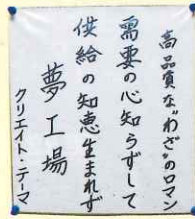 高品質な"わざ"のロマン
需要の心知らずして
供給の知恵生まれず
夢工場
クリエイト・テーマ